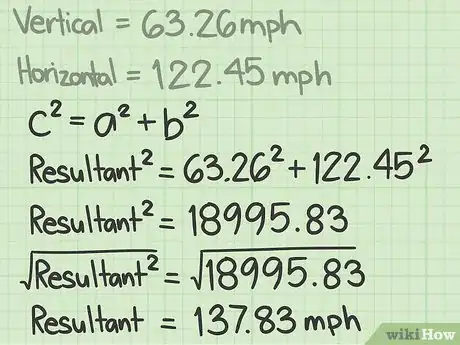 Vertical = 63.26mph
Horizontal = 122.45 mph
c² = a² + b²
Resultant² = 63.26² + 122.45²
Resultant² = 18995.83
√Resultant² = √18995.83
Resultant = 137.83 mph
wikiHow